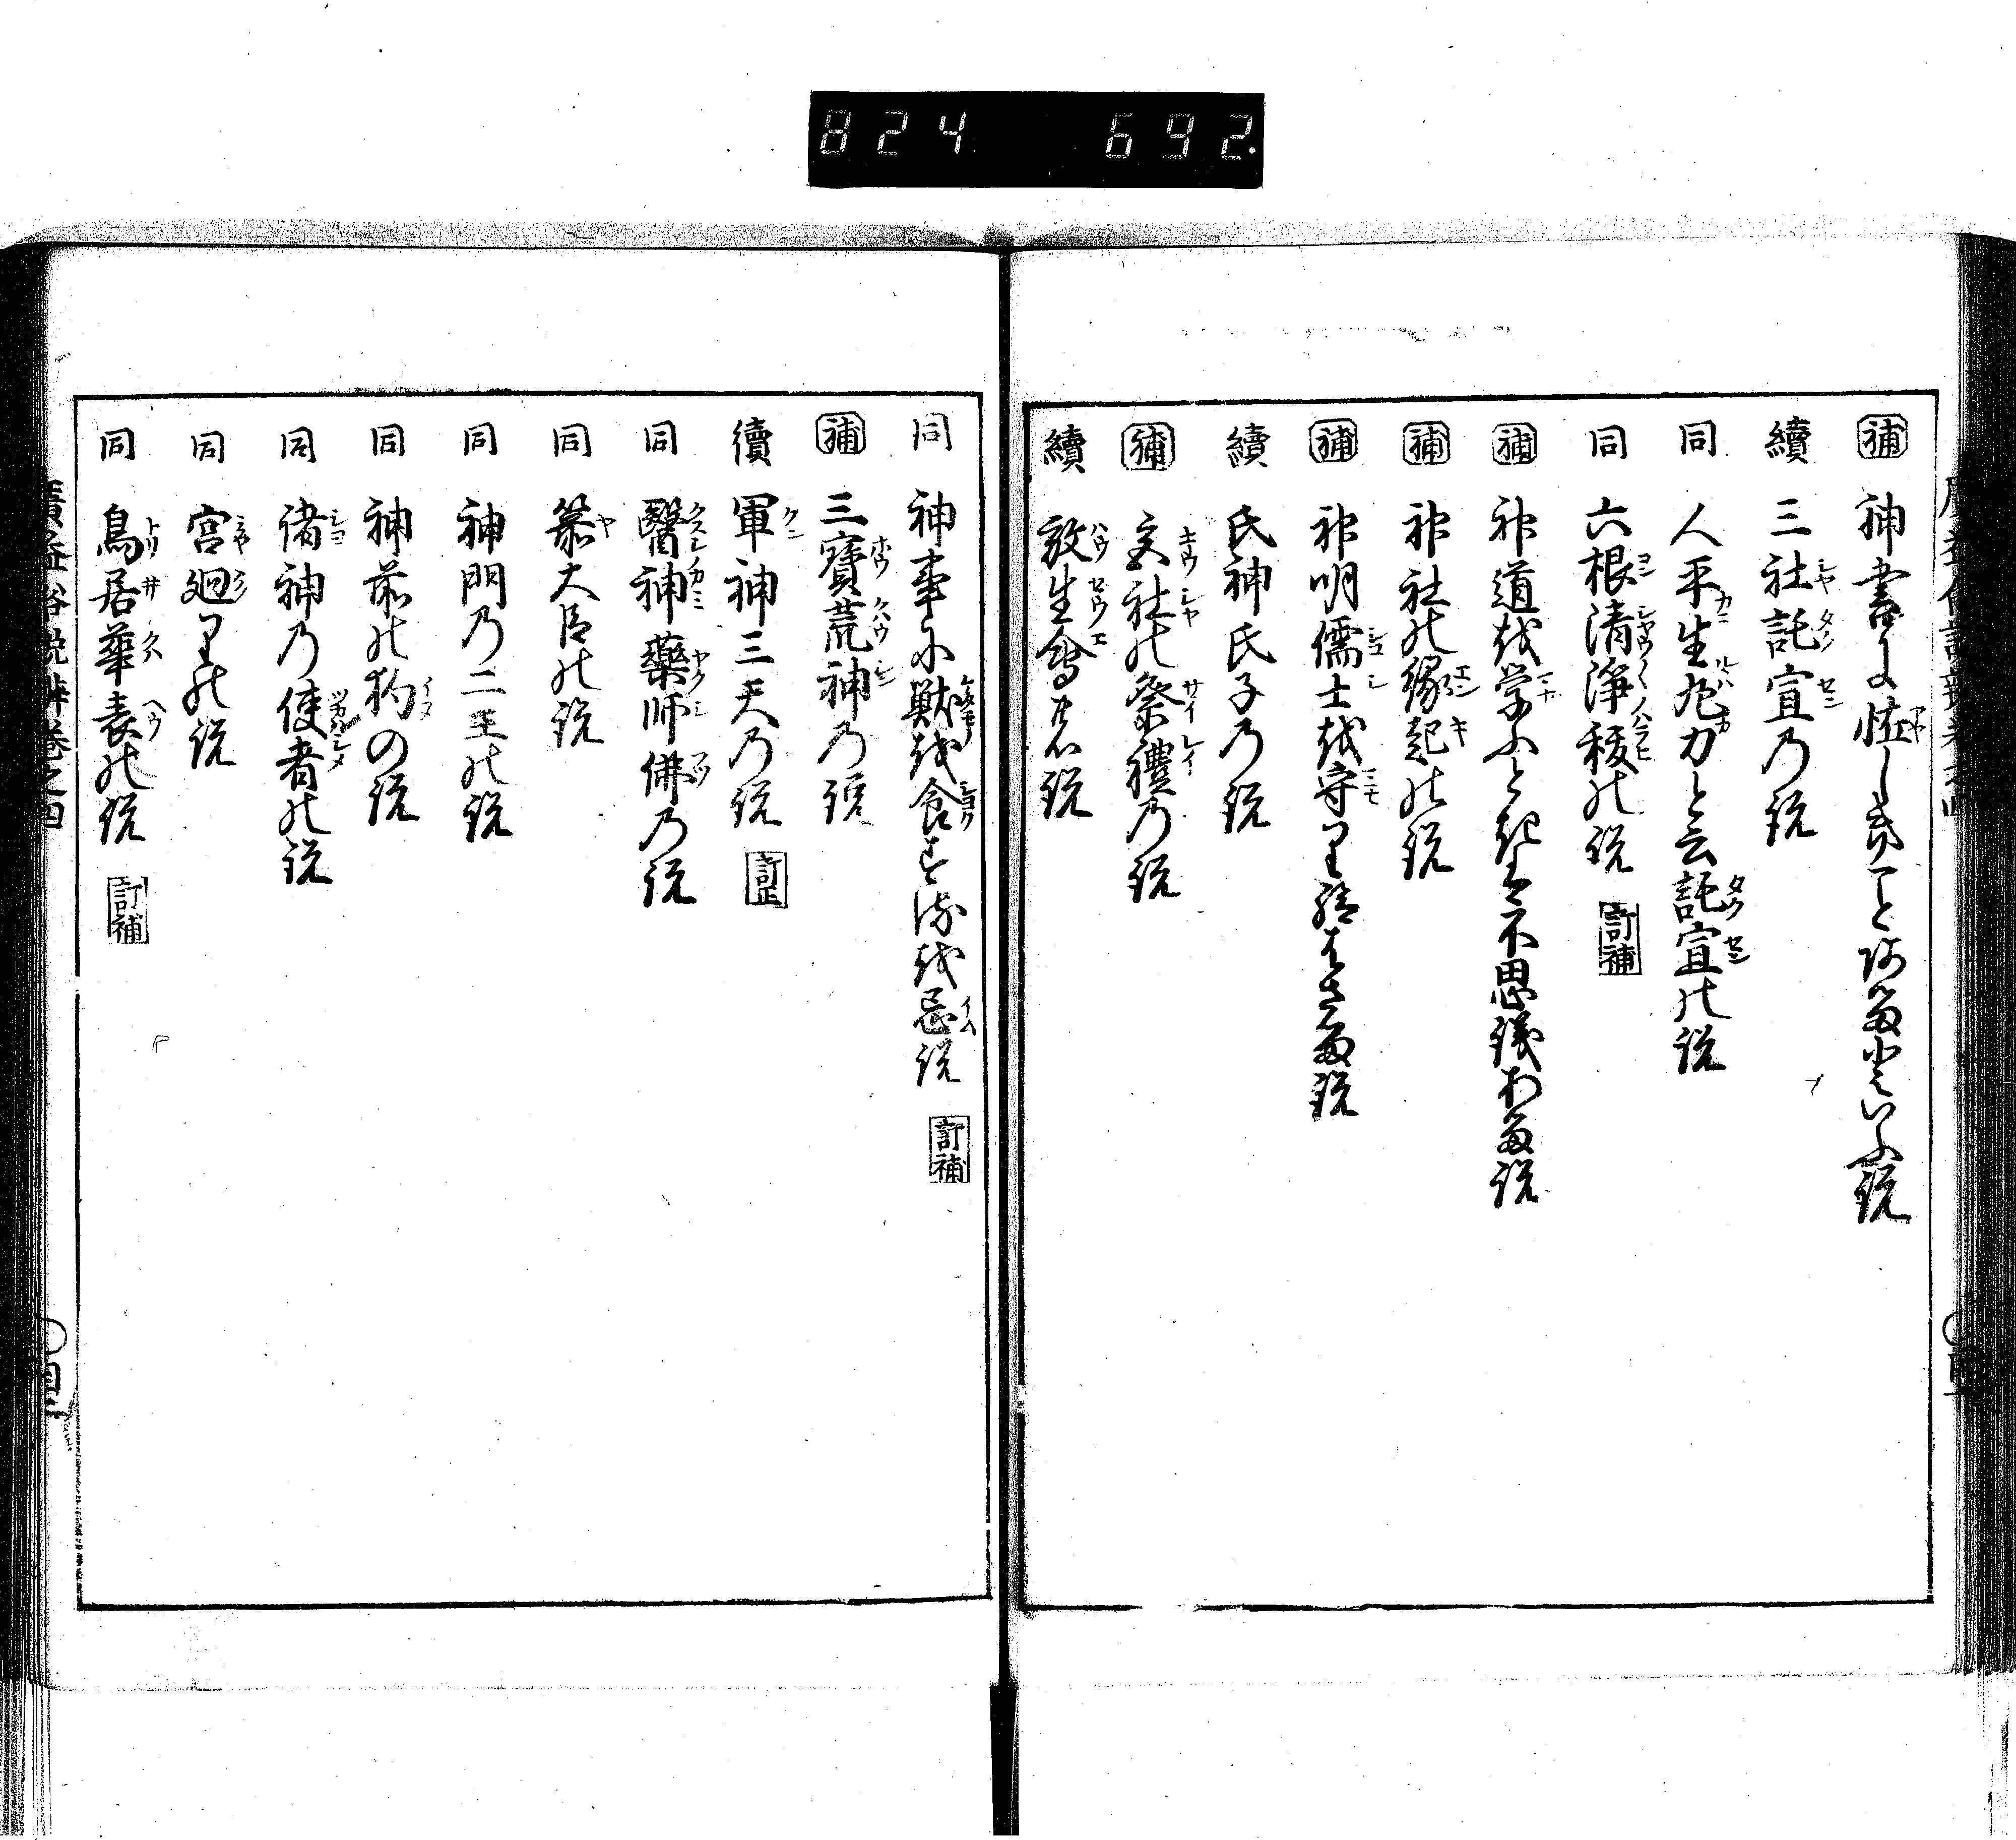 824 692
補 神書に怪しきことある と いふ説
續 三社託宣乃説
同 人平生 力と云託宣の説
同 六根清浄祓の説 訂補
補 神道を学ふときは不思議ある説
補 神社の縁起の説
補 神明儒士を守り給はさる説
續 氏神氏子乃説
補 社の祭禮乃説
續 放生會 説
同 神事に獣を食する を忌説 訂補
補 三寳荒神乃説
續 軍神三天乃説 訂正
同 醫神藥师佛乃説
同 大臣の説
同 神門乃二王の説
同 神前の狗の説
同 諸神乃使者の説
同 宮廻りの説
同 鳥居華表の説 訂補
廣益俗説辨卷之四